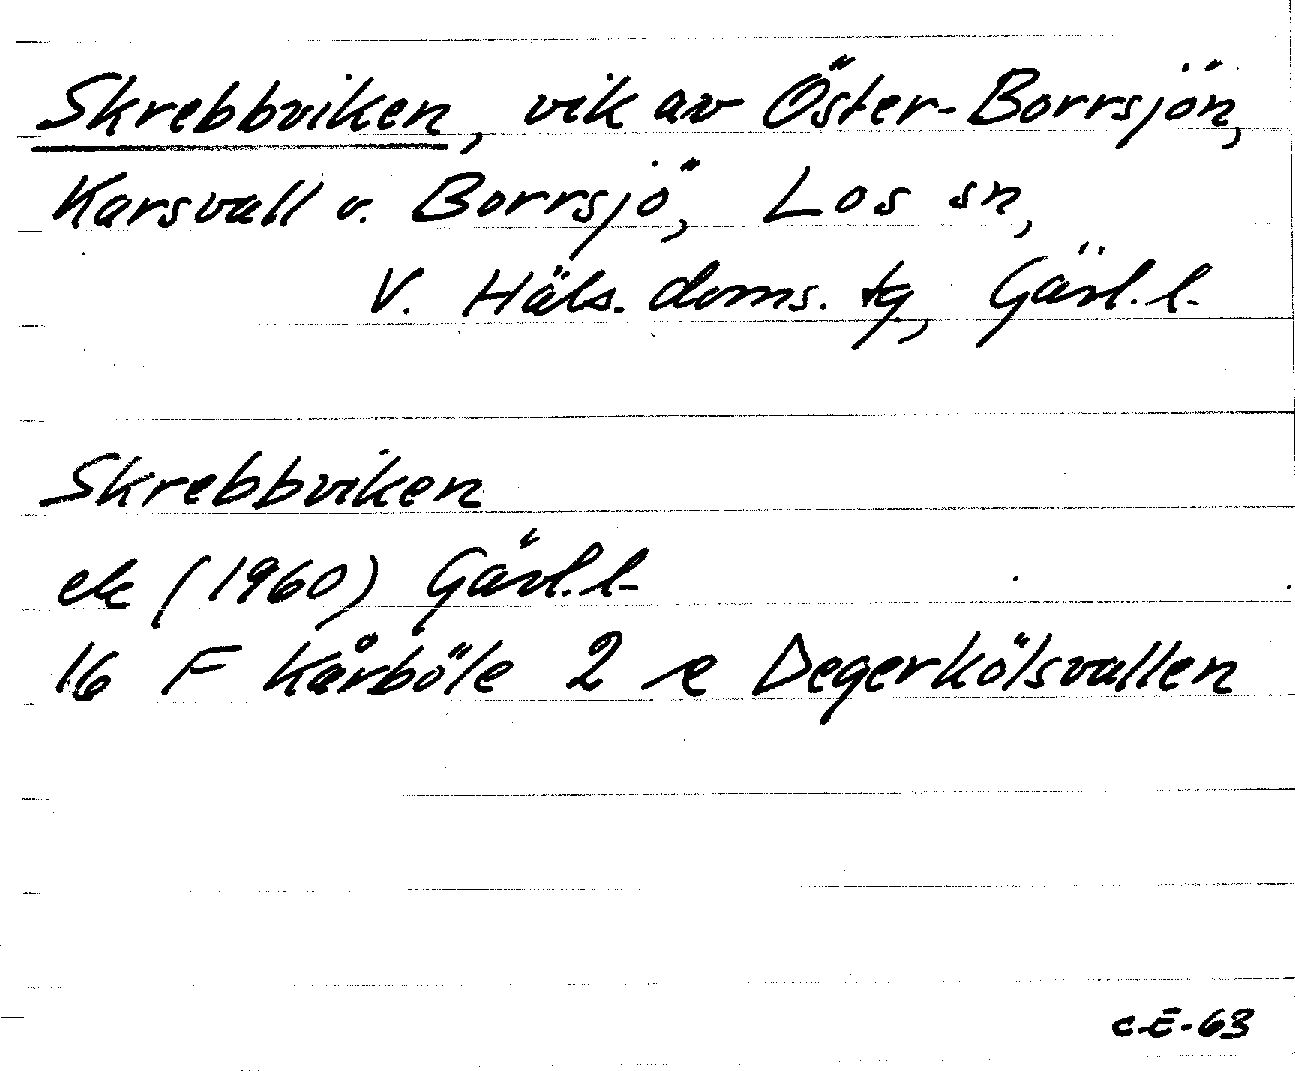 Skrebbviken, vik av Öster-Borrsjön,
Karsvall v. Borrsjö, Los sn,
V. Häls. doms. tg, Gävl. l.
Skrebbviken
ek (1960) Gävl. l.
16 F Kårböle 2 e Degerkölsvallen
C.E-63